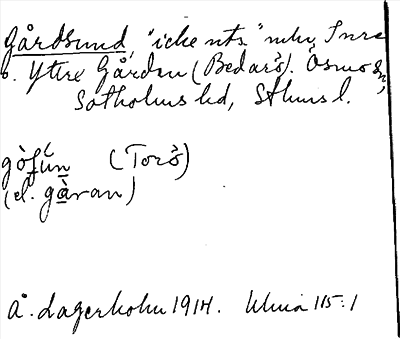 Gårdsund, "icke uts." mln. Inre
o. Yttre Gården (Bedarö). Ösmo sn,
Sotholms hd, Sthms l.
(Torö)
(el. gàran)
Å. Lagerholm 1914. 115:1